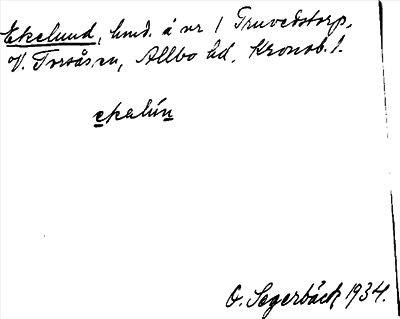 Ekelund, hmd. å nr 1 Truvedstorp,
V. Torsås sn, Allbo hd, Kronob. l.
ekalún
O. Segerbäck 1934.